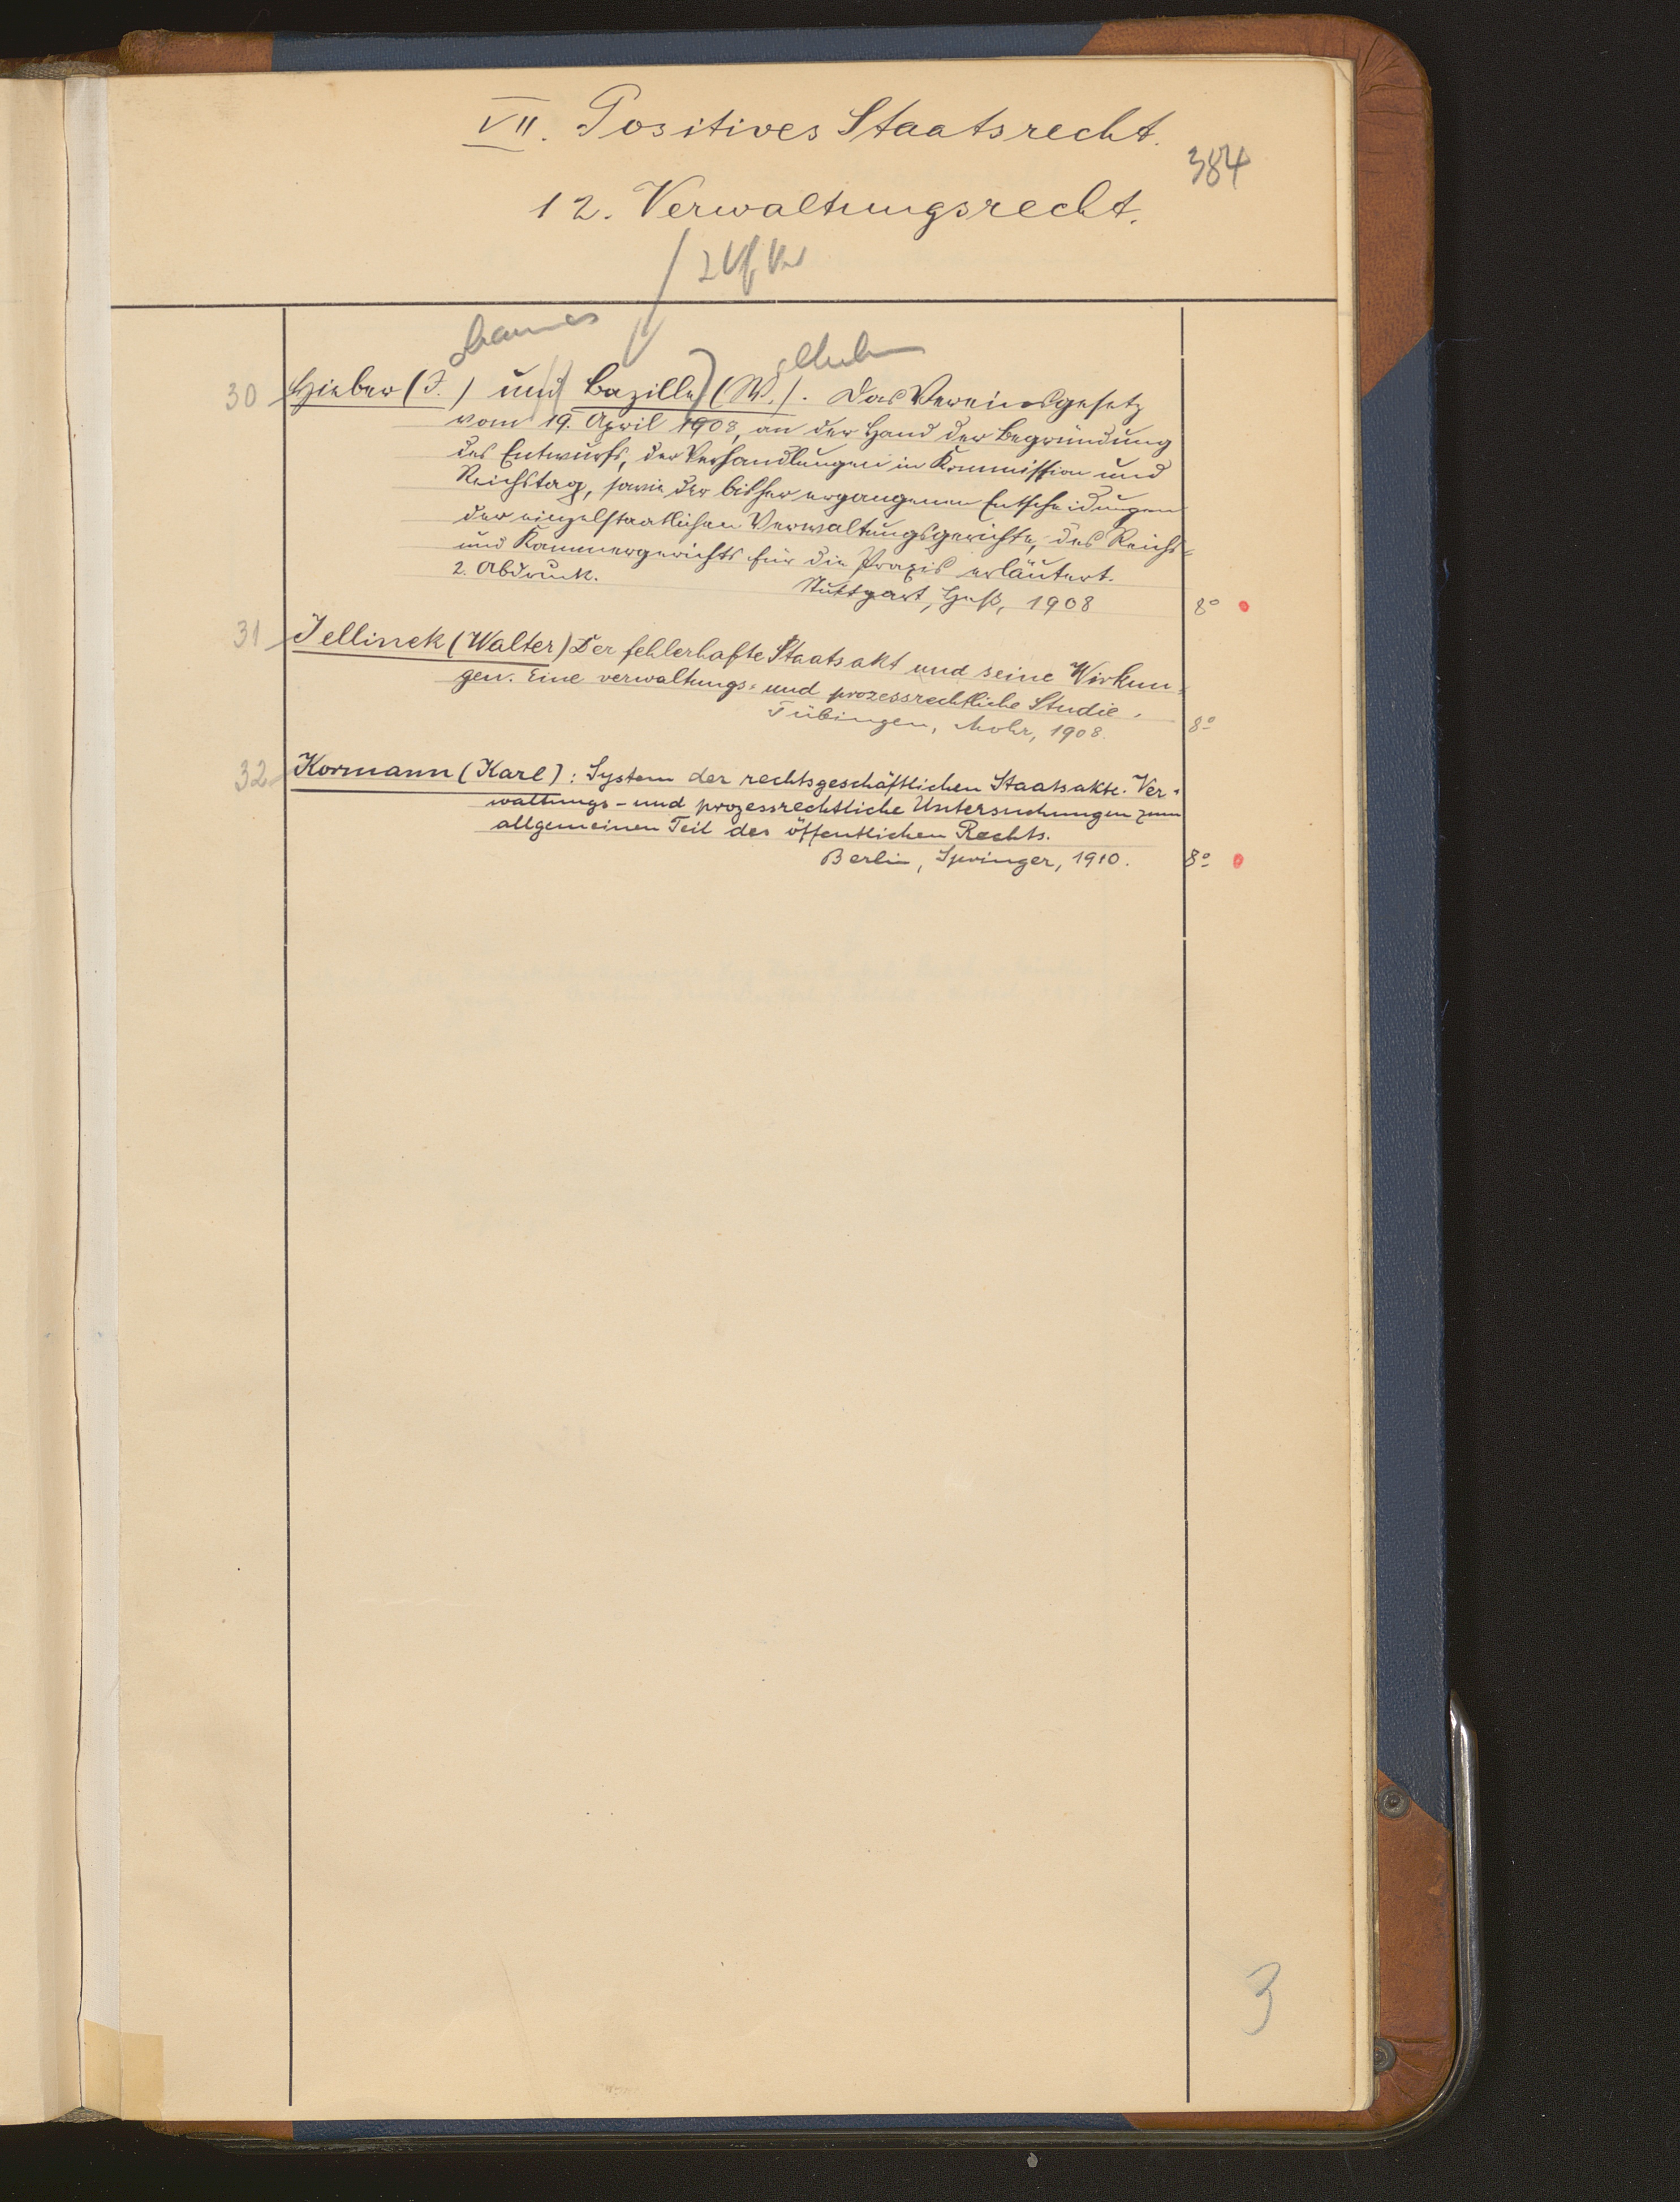 VII. Positives Staatsrecht.
384
12. Verwaltungsrecht.
ohannes
ilhelm
30 Hieber (J.) und Bazille (W.). Das Vereinsgesetz
vom 19. April 1908, an der Hand der Begründung
des Entwurfs, der Verhandlungen in Kommission und
Reichstag, sowie der bisher ergangenen Entscheidungen
der einzelstaatlichen Verwaltungsgerichte, des Reichs-
und Kammergerichts für die Praxis erläutert.
2. Abdruck.
Stuttgart, Heß, 1908 8°
31 Jellinek (Walter) Der fehlerhafte Staatsakt und seine Wirkun-
gen. Eine verwaltungs- und prozessrechtliche Studie.
Tübingen, Mohr, 1908. 8°
32 Kormann (Karl): System der rechtsgeschäftlichen Staatsakte. Ver-
waltungs- und prozessrechtliche Untersuchungen zum
allgemeinen Teil des öffentlichen Rechts.
Berlin, Springer, 1910. 8°
3